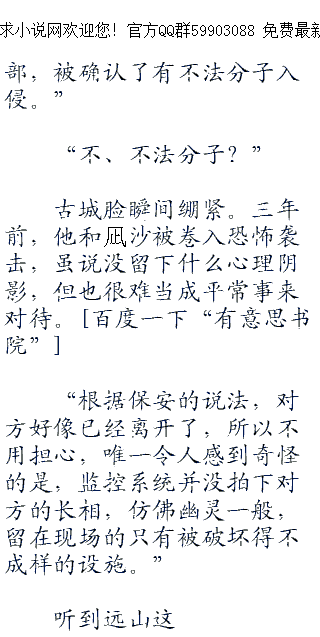 求小说网欢迎您！官方QQ群59903088 免费最新
部，被确认了有不法分子入
侵。”
“不、不法分子？”
古城脸瞬间绷紧。三年
前，他和凪沙被卷入恐怖袭
击，虽说没留下什么心理阴
影，但也很难当成平常事来
对待。[百度一下“有意思书
院”]
“根据保安的说法，对
方好像已经离开了，所以不
用担心，唯一令人感到奇怪
的是，监控系统并没拍下对
方的长相，仿佛幽灵一般，
留在现场的只有被破坏得不
成样的设施。”
听到远山这